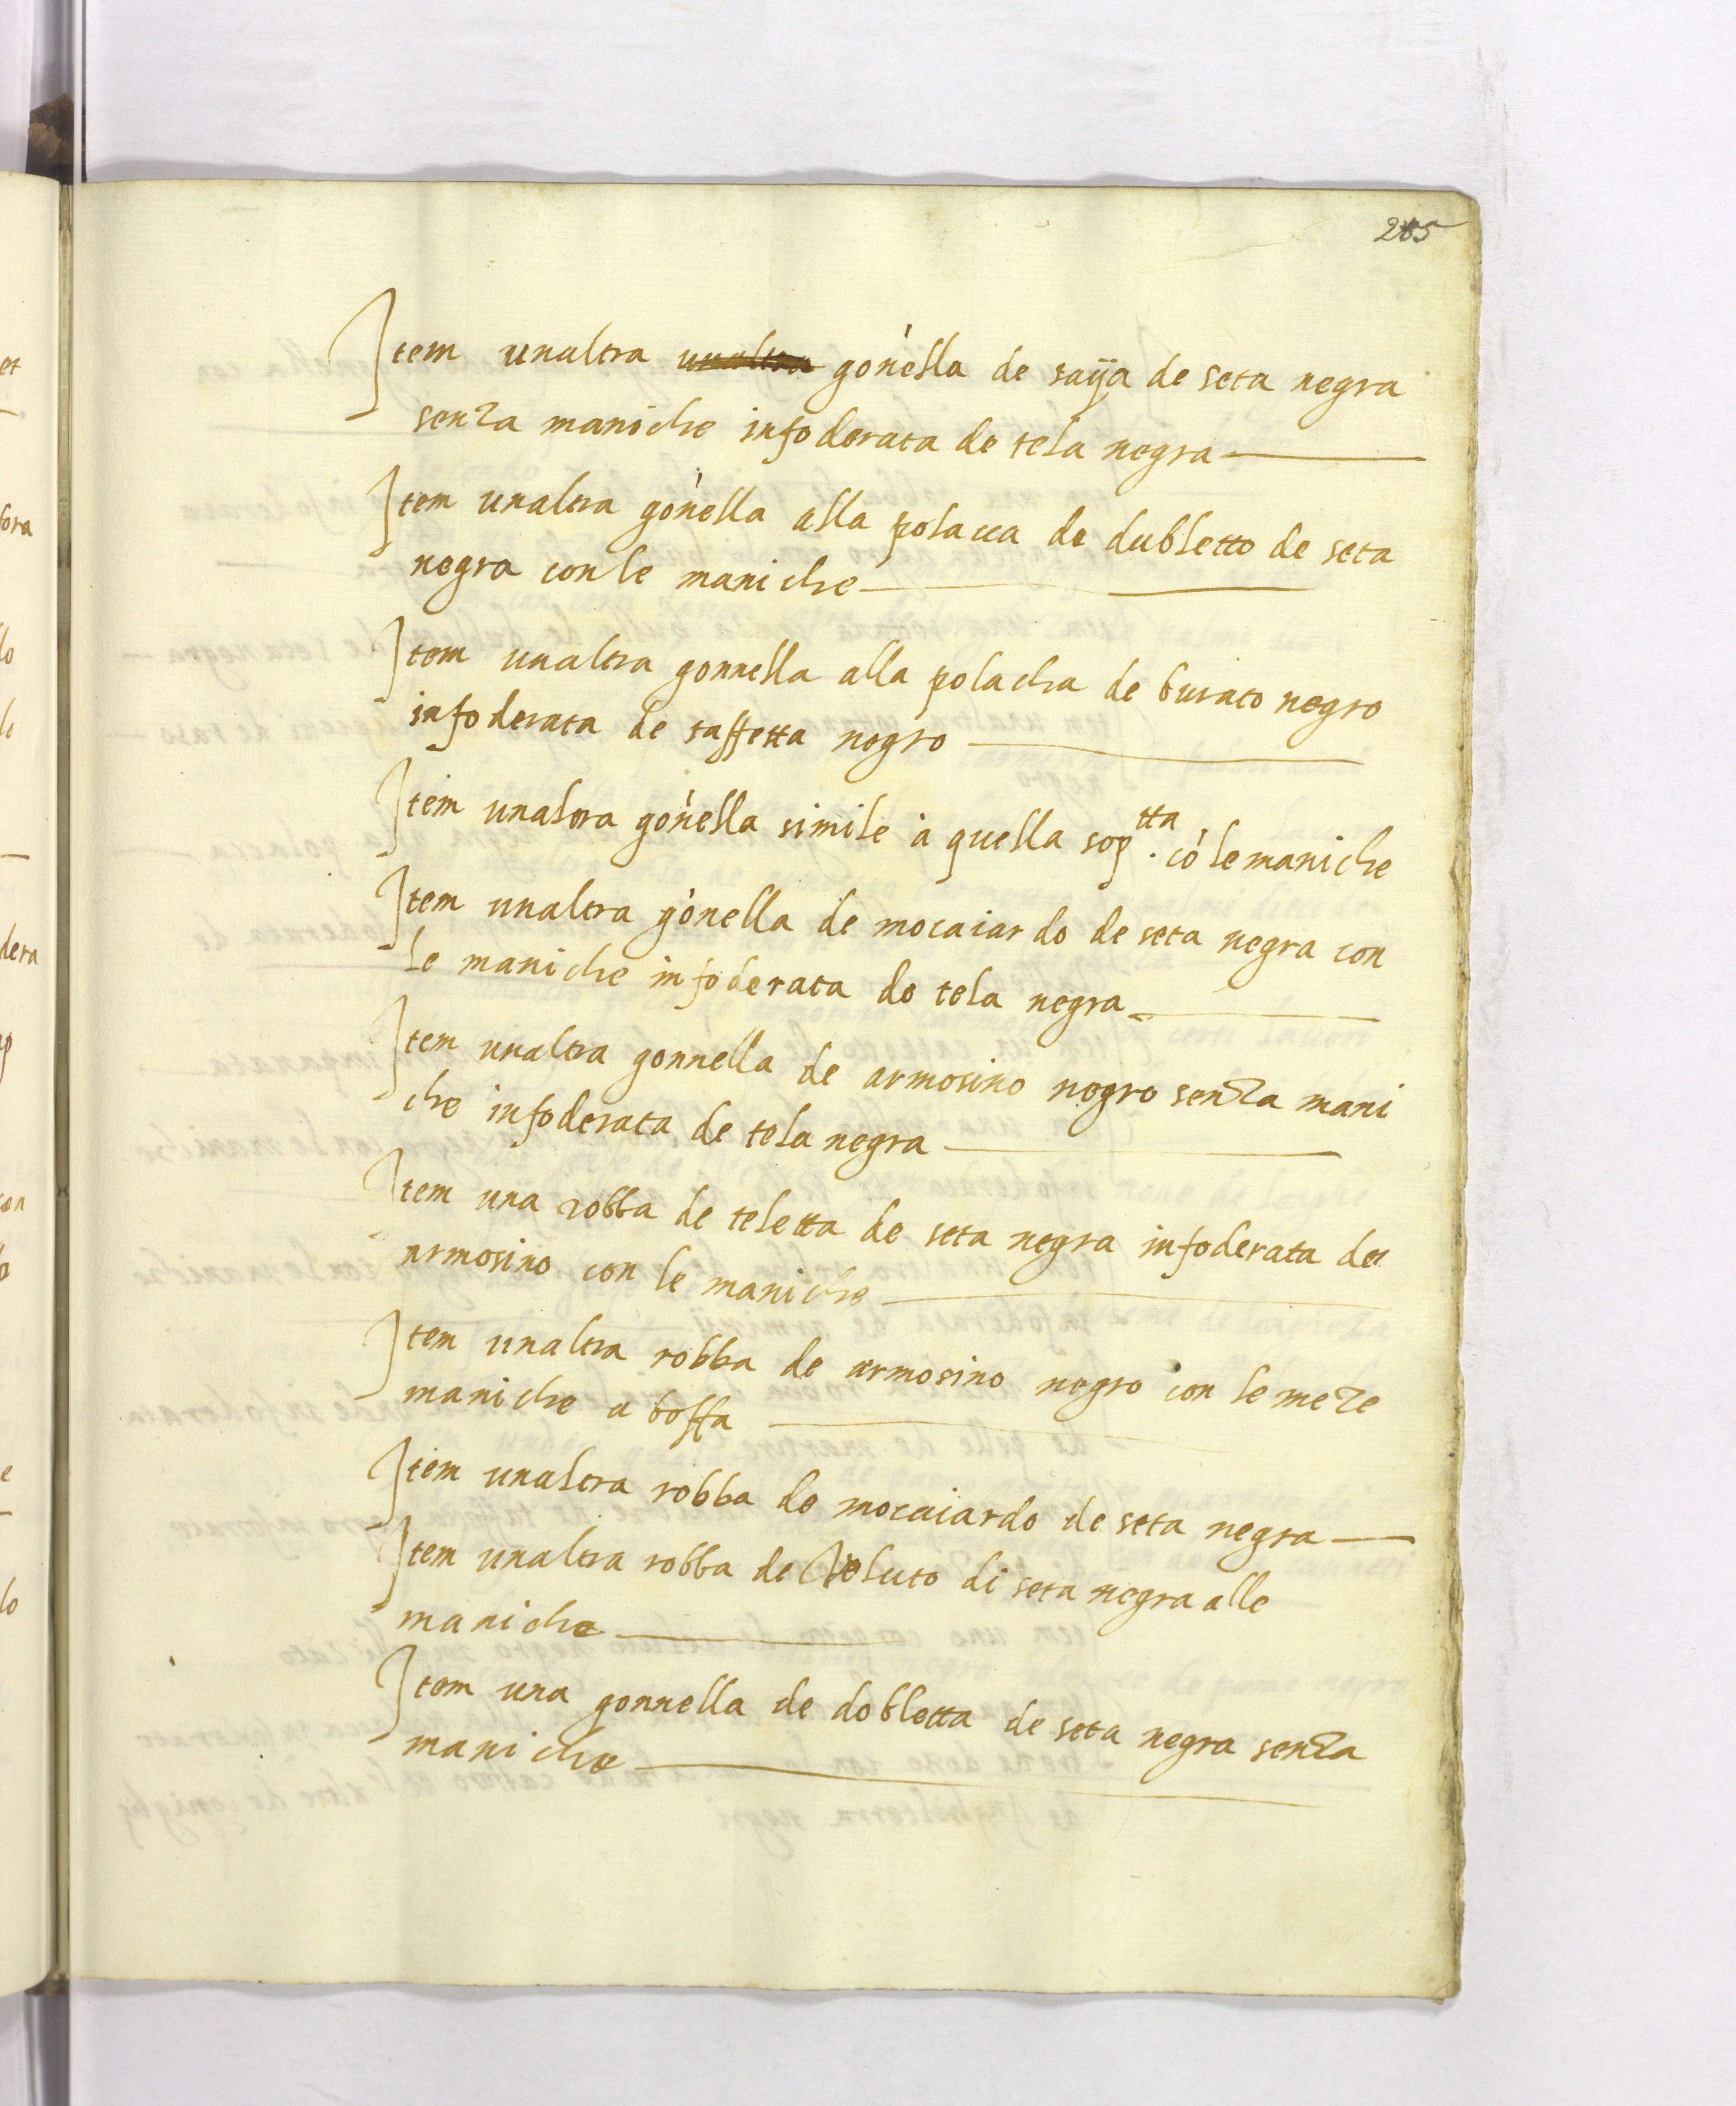 205
Item unaltra unaltra gonèlla de saÿa de seta negra
senza maniche infoderata de tela negra
Item unaltra gonèlla alla polacca de dubletto de seta
negra con le maniche
Item unaltra gonnella alla polacha de burato negro
infoderata de taffetta negro
Item unaltra gonèlla simile à quella sop.tta cō le maniche
Item unaltra gōnella de mocaiardo de seta negra con
le maniche infoderata de tela negra
Item unaltra gonnella de armosino negro senza mani
che infoderata de tela negra
Item una robba de teletta de seta negra infoderata de
armosino con le maniche
Item unaltra robba de armosino negro con le meze
maniche a boffa
Item unaltra robba de mocaiardo de seta negra
Item unaltra robba de Veluto di seta negra alle
maniche
Item una gonnella de dobletta de seta negra senza
maniche